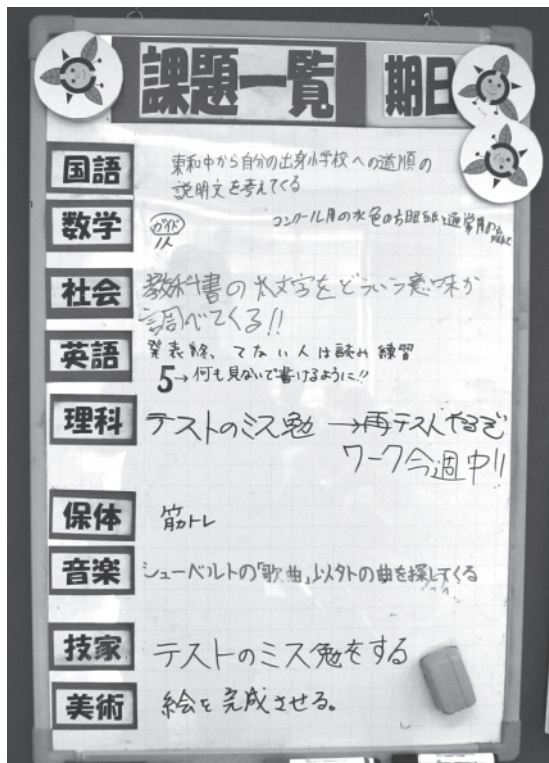 課題一覧 期日
国語 東和中から自分の出身小学校への道順の
説明文を考えてくる
数学 ガイド コンクール用の水色の方眼紙と通常用の
1人
社会 教科書の太文字をどういう意味か
調べてくる!!
英語 発表終、てない人は読み練習
5→何も見ないで書けるように!!
理科 テストのミス勉→再テストやるぞ
ワーク今週中!!
保体 筋トレ
音楽 シューベルトの「歌曲」以外の曲を探してくる
技家 テストのミス勉をする
美術 絵を完成させる。